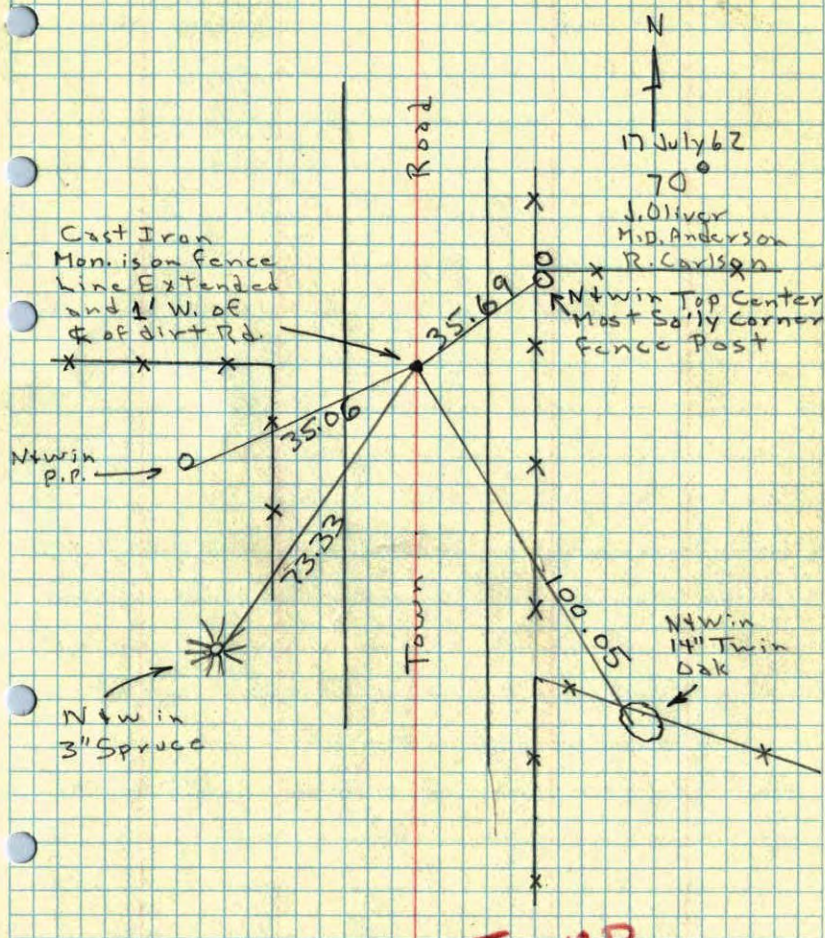 N
17 July 62
70°
J. Oliver
M.D. Anderson
R. Carlson
Road
Cast Iron
Mon. is on fence
Line Extended
and 1' W. of
℄ of dirt Rd.
35.69
N&W in Top Center
Most So'ly Corner
Fence Post
35.06
N&W in
P.P.
73.33
Town
100.05
N&W in
14" Twin
Oak
N&W in
3" Spruce